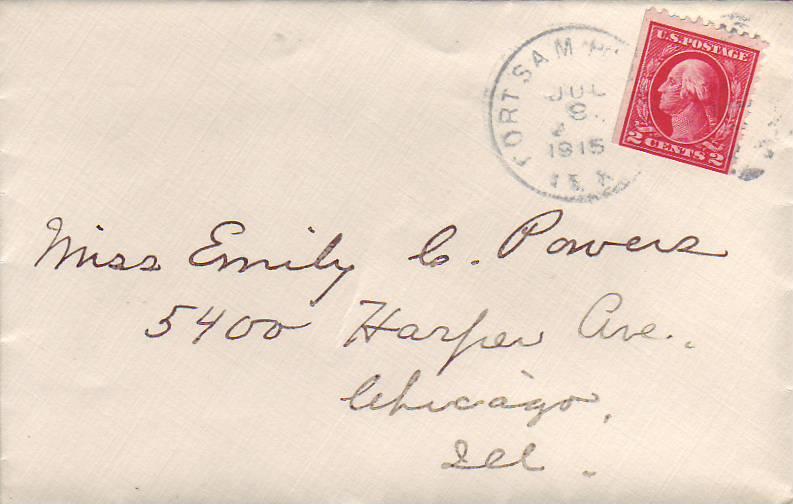 FORT SAM H
JUL
9
1915
TEX
U.S. POSTAGE
2 CENTS 2
Miss Emily C. Powers
5400 Harper Ave.,
Chicago,
Ill.